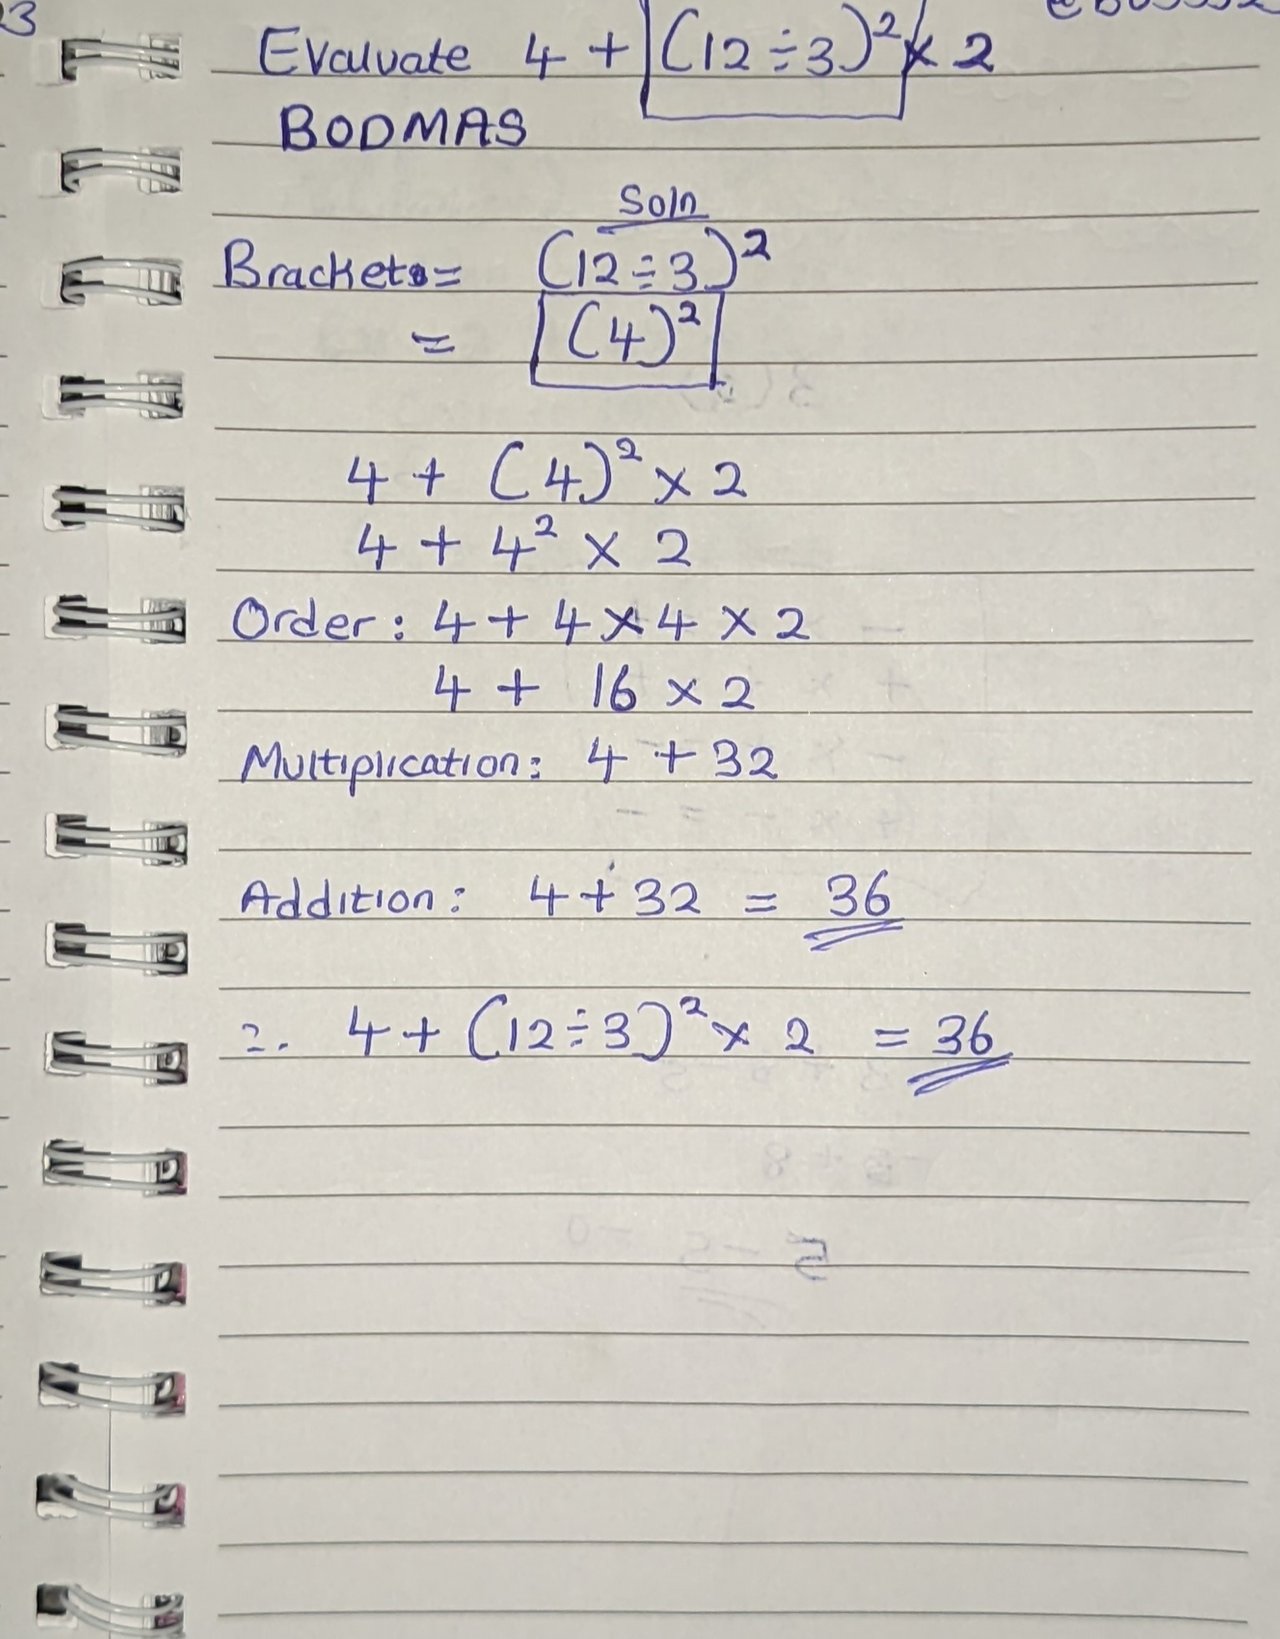 3
Evaluate 4 + (12 ÷ 3)² × 2
BODMAS
Soln
Brackets = (12 ÷ 3)²
= (4)²
4 + (4)² × 2
4 + 4² × 2
Order : 4 + 4 × 4 × 2
4 + 16 × 2
Multiplication: 4 + 32
Addition : 4 + 32 = 36
∴ 4 + (12 ÷ 3)² × 2 = 36